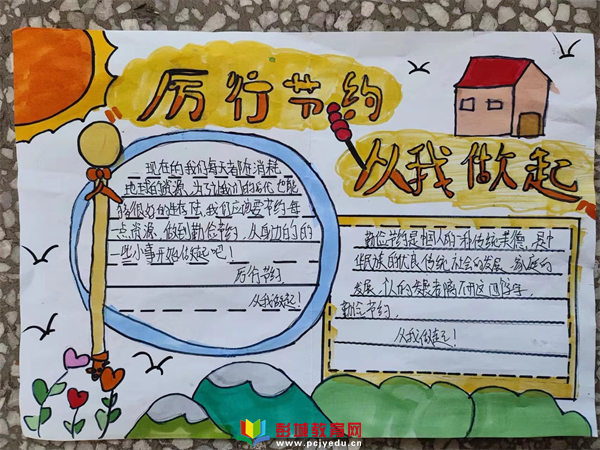 厉行节约
从我做起
现在的我们每天都在消耗
地球的资源，为了让我们的后代也能
够很好的生存，我们应该节约每一
点资源，做到勤俭节约，从身边的
一些小事开始做起吧！
厉行节约
从我做起！
勤俭节约是中国人的一种传统美德，是中
华民族的优良传统，社会的发展、家庭的
发展、人的发展都离不开这四个字，
勤俭节约。
从我做起！
彭城教育网
www.pcjyedu.cn